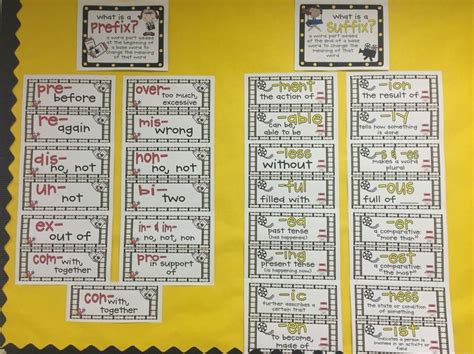 what is a
prefix?
a word part added
at the beginning of
a base word to
change the meaning
of that word
pre-
before
re-
again
dis-
no, not
un-
not
ex-
out of
com-
with,
together
over-
too much,
excessive
mis-
wrong
non-
no, not
bi-
two
in- & im-
no, not, non
pro-
in support of
con-
with,
together
what is a
suffix?
a word part added
at the end of a
base word to change
the meaning of
that word
-ment
the action of
-able
can be,
able to be
-less
without
-ful
filled with
-ed
past tense
(has happened)
-ing
present tense
(is happening now)
-ic
further describes
a certain trait
-en
to become,
made of
-ion
the result of
-ly
tells how something
is done
-s & -es
makes a word
plural
-ous
full of
-er
a comparative:
"more than"
-est
a comparative:
"the most"
-ness
the state or condition
of something
-ist
indicates a person is
involved in an activity or